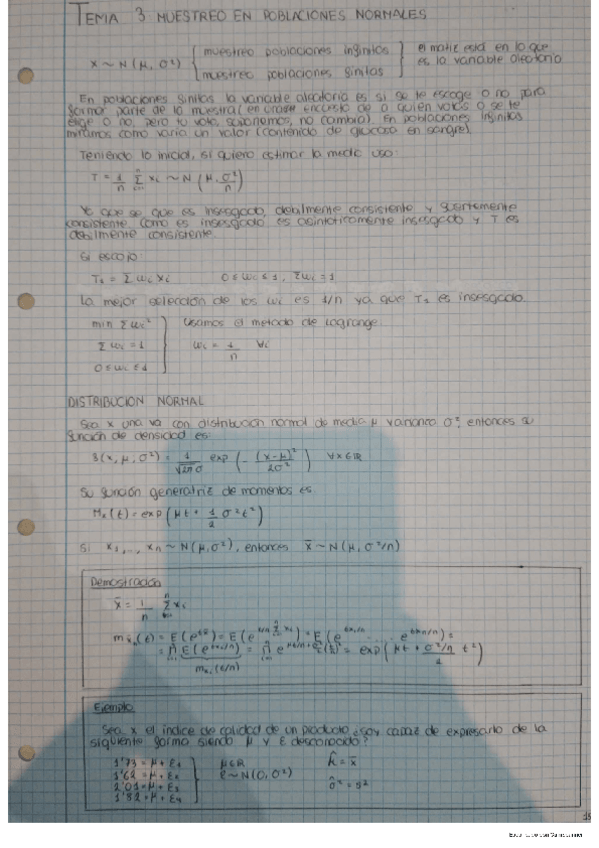 TEMA 3 MUESTREO EN POBLACIONES NORMALES
X ~ N(μ, σ²) { muestreo poblaciones infinitas } el matiz está en lo que
muestreo poblaciones finitas } es la variable aleatoria
En poblaciones finitas la variable aleatoria es si se te escoge o no para
formar parte de la muestra (en una encuesta de a quién votas o se te
elige o no, pero tu voto, suponemos, no cambia). En poblaciones infinitas
miramos como varía un valor (contenido de glucosa en sangre)
Teniendo lo inicial, si quiero estimar la media uso:
T = 1/n Σ xi ~ N(μ, σ²/n)
Ya que se que es insesgado, debilmente consistente y fuertemente
consistente. Como es insesgado es asintoticamente insesgado y T es
debilmente consistente.
Si escojo:
T1 = Σ ωi xi 0 ≤ ωi ≤ 1, Σωi = 1
La mejor selección de los ωi es 1/n ya que T1 es insesgado.
min Σ ωi² } Usamos el metodo de Lagrange
Σ ωi = 1 } ωi = 1/n ∀i
0 ≤ ωi ≤ 1
DISTRIBUCION NORMAL
Sea X una va con distribución normal de media μ varianza σ², entonces su
función de densidad es:
f(x, μ, σ²) = 1/√2π σ exp(- (x-μ)²/2σ²) ∀x∈ℝ
Su función generatriz de momentos es
Mx(t) = exp(μt + 1/2 σ²t²)
Si x1, ..., xn ~ N(μ, σ²), entonces x̄ ~ N(μ, σ²/n)
Demostración
x̄ = 1/n Σ xi
Ejemplo
Sea x el índice de calidad de un producto ¿soy capaz de expresarlo de la
siguiente forma siendo μ y ε desconocido?
1'73 = μ + ε1 } μ∈ℝ μ̂ = x̄
1'62 = μ + ε2 } ε ~ N(0, σ²) σ̂² = s²
2'01 = μ + ε3
1'82 = μ + ε4